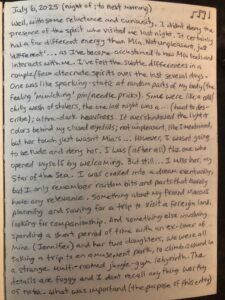 July 6, 2025 (night of; to next morning)
Well, with some reluctance and curiosity, I didn't deny the
presence of the spirit who visited me last night. It certainly
had a far different energy than Mia. Not unpleasant, just
different... as I've become accustomed to how Mia feels and
interacts with me. I've felt the subtle differences in a
couple/few alternate spirits over the last several days -
One was like sparkling-static of random parts of my body (the
feeling "mimicking" pin/needle pricks). Some were like a cold/
chilly wash of shivers, the one last night was a... (hard to des-
cribe); ultra-dark heaviness. It overshadowed the light &
colors behind my closed eyelids; not unpleasant, like I mentioned
but her touch just wasn't Mia's... However, I wasn't going
to be rude and deny her. I was (after all) the one who
opened myself by welcoming. But still... I miss her, my
Star of the Sea. I was eased into a dream eventually
but I only remember random bits and parts that barely
have any relevance. Something about my friend Marcus
planning and saving for a trip to visit a foreign land,
looking for companionship. And something else involving
spending a short period of time with an ex-lover of
mine (Jennifer) and her two daughters, we were all
taking a trip to an amusement park, to climb around in
a strange multi-roomed jungle-gym labyrinth. The
details are foggy and I don't recall anything worthy
of note. What was important (the purpose of this entry)